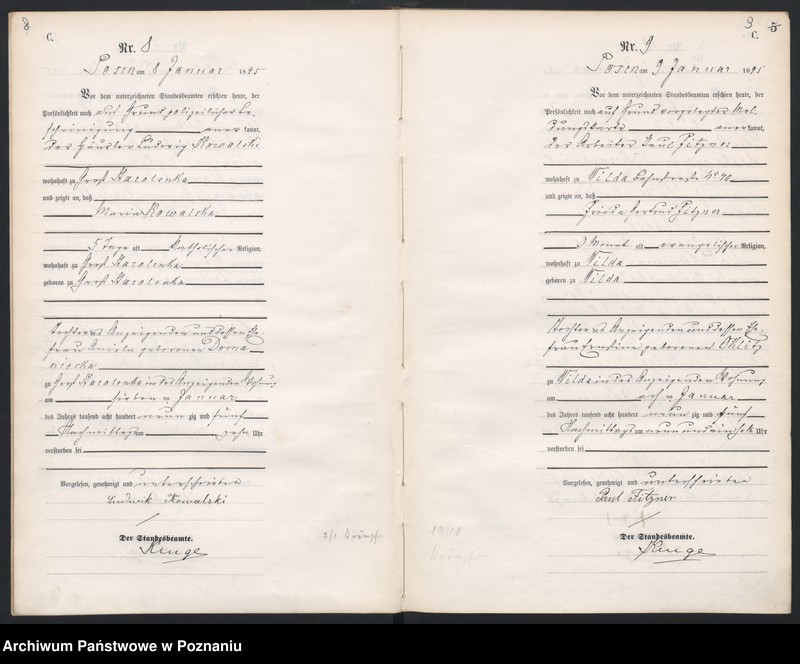 8
C.
Nr. 8
Posen am 8 Januar 1895
Vor dem unterzeichneten Standesbeamten erschien heute, der
Persönlichkeit nach auf Grund polizeilicher Be-
scheinigung anerkannt,
der Häusler Ludwig Kowalski
wohnhaft zu Groß Starolenka
und zeigte an, daß
Maria Kowalska
5 Tage alt katholischer Religion,
wohnhaft zu Groß Starolenka
geboren zu Groß Starolenka
Tochter des Anzeigenden und dessen Ehe-
frau Aniela geborenen Doma
niecka
zu Groß Starolenka in des Anzeigenden Wohnung
am sieben ten Januar
des Jahres tausend acht hundert neun zig und fünf
Nachmittags um zehn Uhr
verstorben sei
Vorgelesen, genehmigt und unterschrieben
Ludwik Kowalski
Der Standesbeamte.
9
C.
Nr. 9
Posen am 9 Januar 1895
Vor dem unterzeichneten Standesbeamten erschien heute, der
Persönlichkeit nach auf Grund vorgelegter Mel-
dungskarte anerkannt,
der Arbeiter Paul Fitzner
wohnhaft zu Wilda Bahnstraße No 40
und zeigte an, daß
Frieda Gertrud Fitzner
3 Monat alt evangelischer Religion,
wohnhaft zu Wilda
geboren zu Wilda
Tochter des Anzeigenden und dessen Ehe-
frau Ernstine geborenen Ohlitz
zu Wilda in des Anzeigenden Wohnung
am ach ten Januar
des Jahres tausend acht hundert neun zig und fünf
Nachmittags um neun und einhalb Uhr
verstorben sei
Vorgelesen, genehmigt und unterschrieben
Paul Fitzner
Der Standesbeamte.
Archiwum Państwowe w Poznaniu